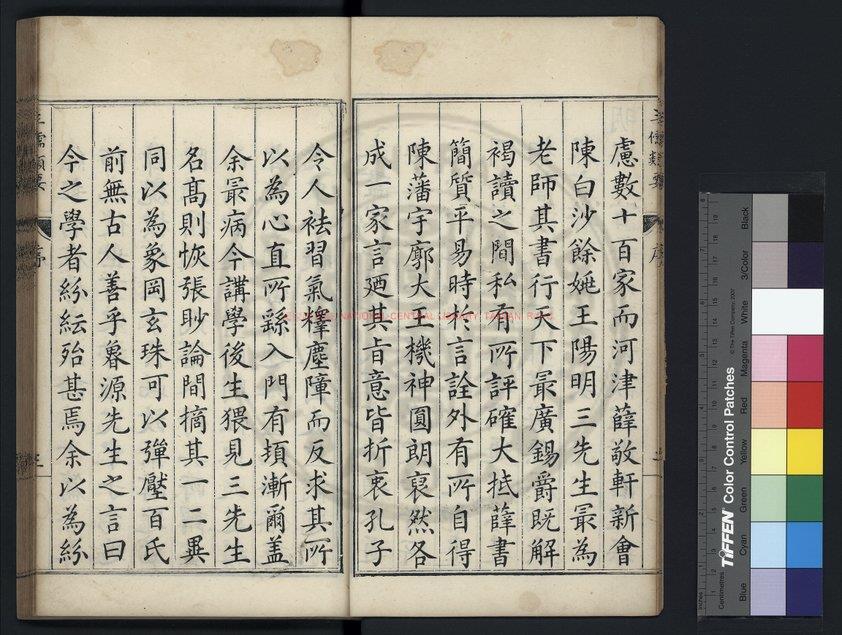 慮數十百家而河津薛敬軒新會
陳白沙餘姚王陽明三先生最為
老師其書行天下最廣錫爵既解
褐讀之間私有所評確大抵薛書
簡質平易時於言詮外有所自得
陳藩宇廓大王機神圓朗裒然各
成一家言廼其旨意皆折衷孔子
令人袪習氣釋塵障而反求其所
以為心直所繇入門有頓漸爾蓋
余最病今講學後生猥見三先生
名高則恢張眇論間摘其一二異
同以為象岡玄珠可以彈壓百氏
前無古人善乎魯源先生之言曰
今之學者紛紜殆甚焉余以為紛
三儒類要
序
NATIONAL CENTRAL LIBRARY
TIFFEN Color Control Patches
© The Tiffen Company, 2007
Centimetres
Inches
Blue
Cyan
Green
Yellow
Red
Magenta
White
3/Color
Black